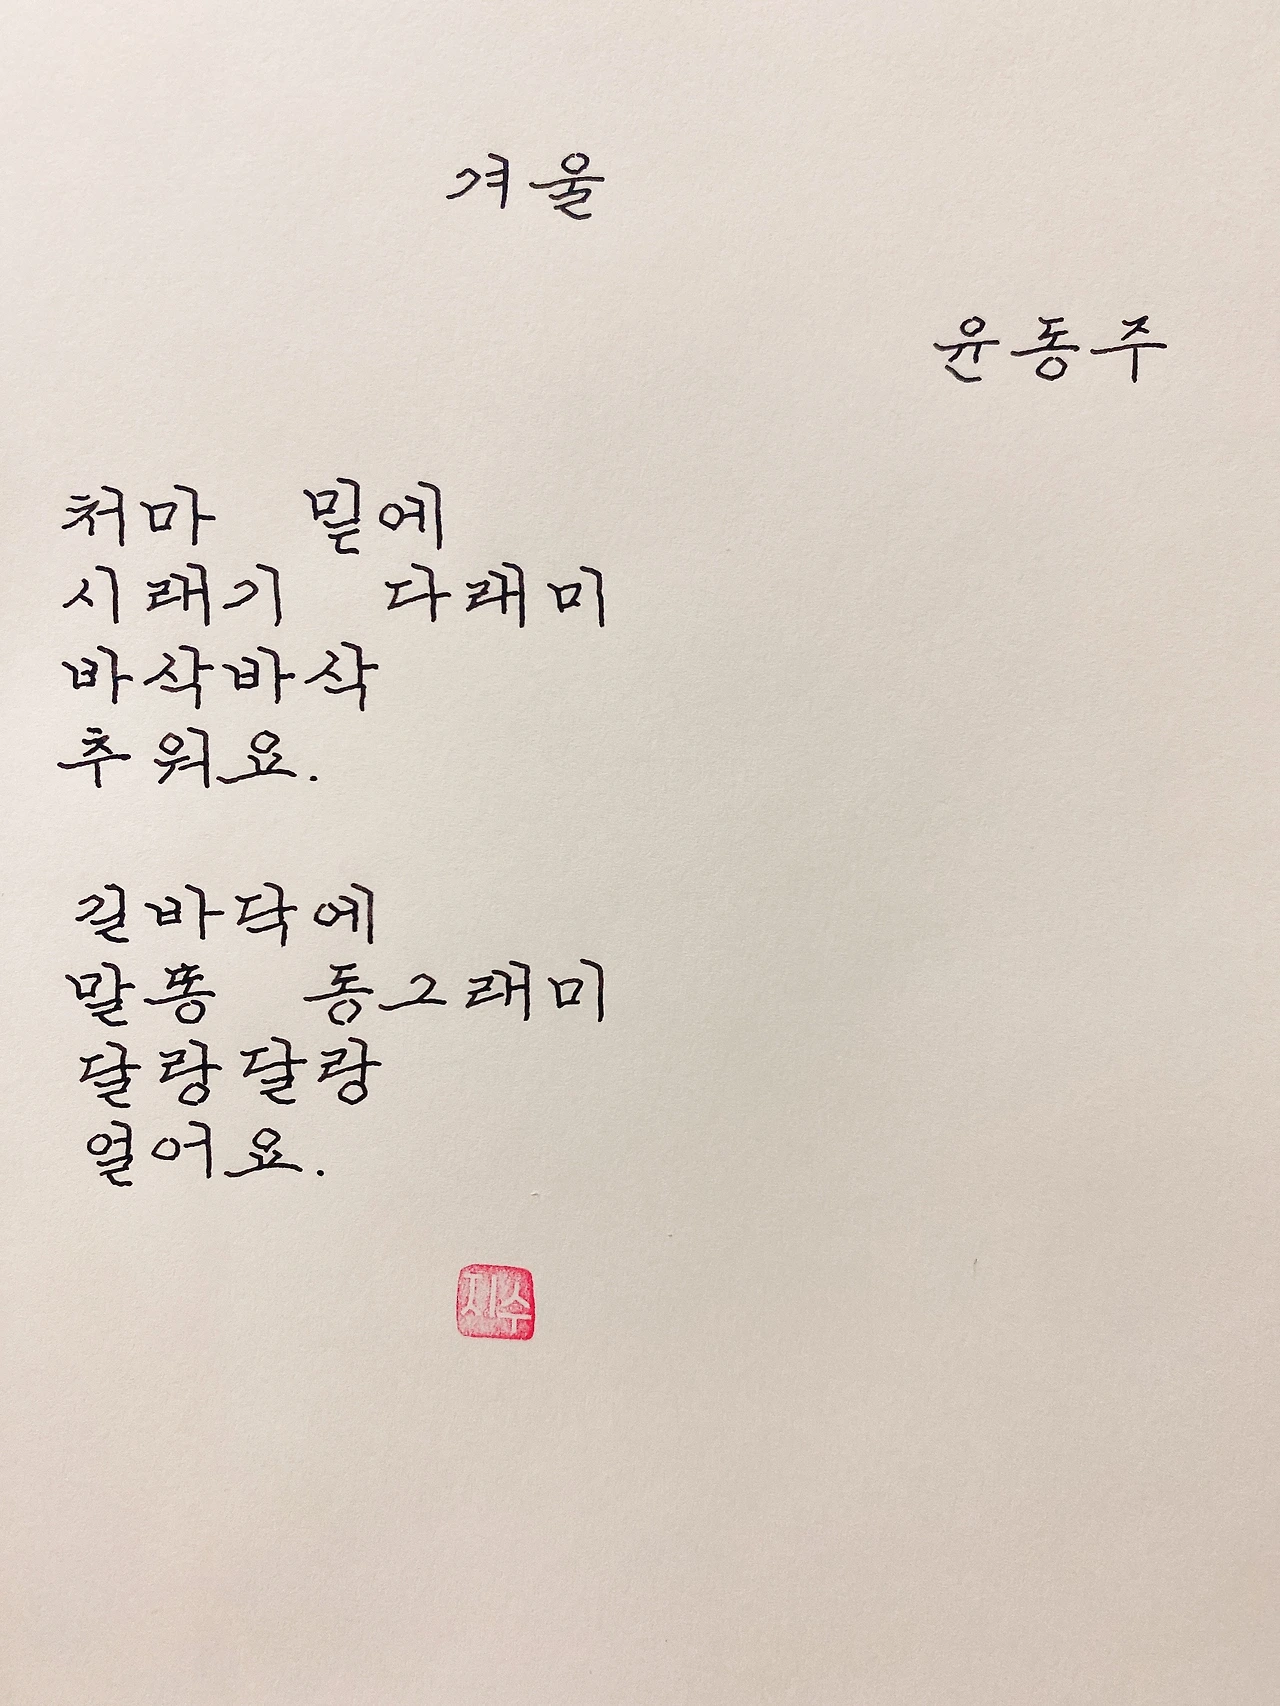 겨울
윤동주
처마 밑에
시래기 다래미
바삭바삭
추워요.
길바닥에
말똥 동그래미
달랑달랑
얼어요.
지수